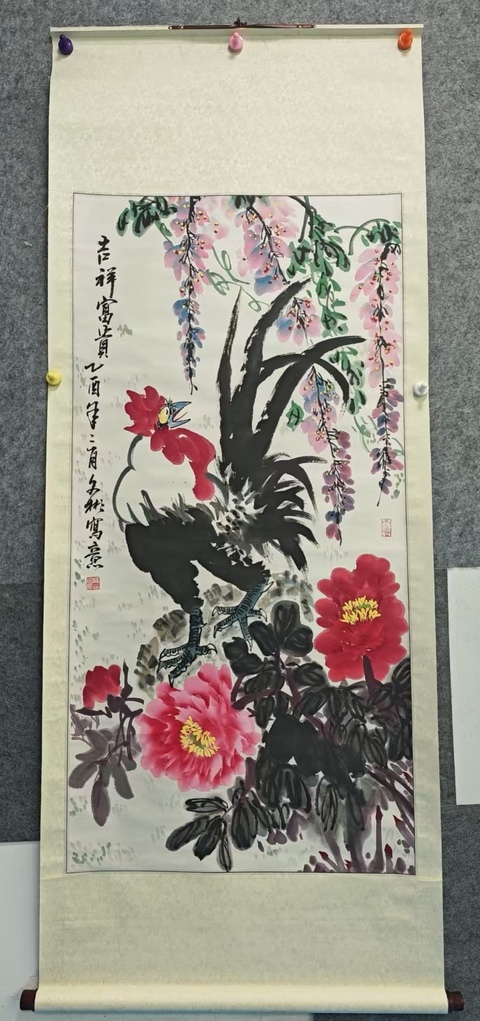 吉祥富貴乙酉年二月文彬寫意